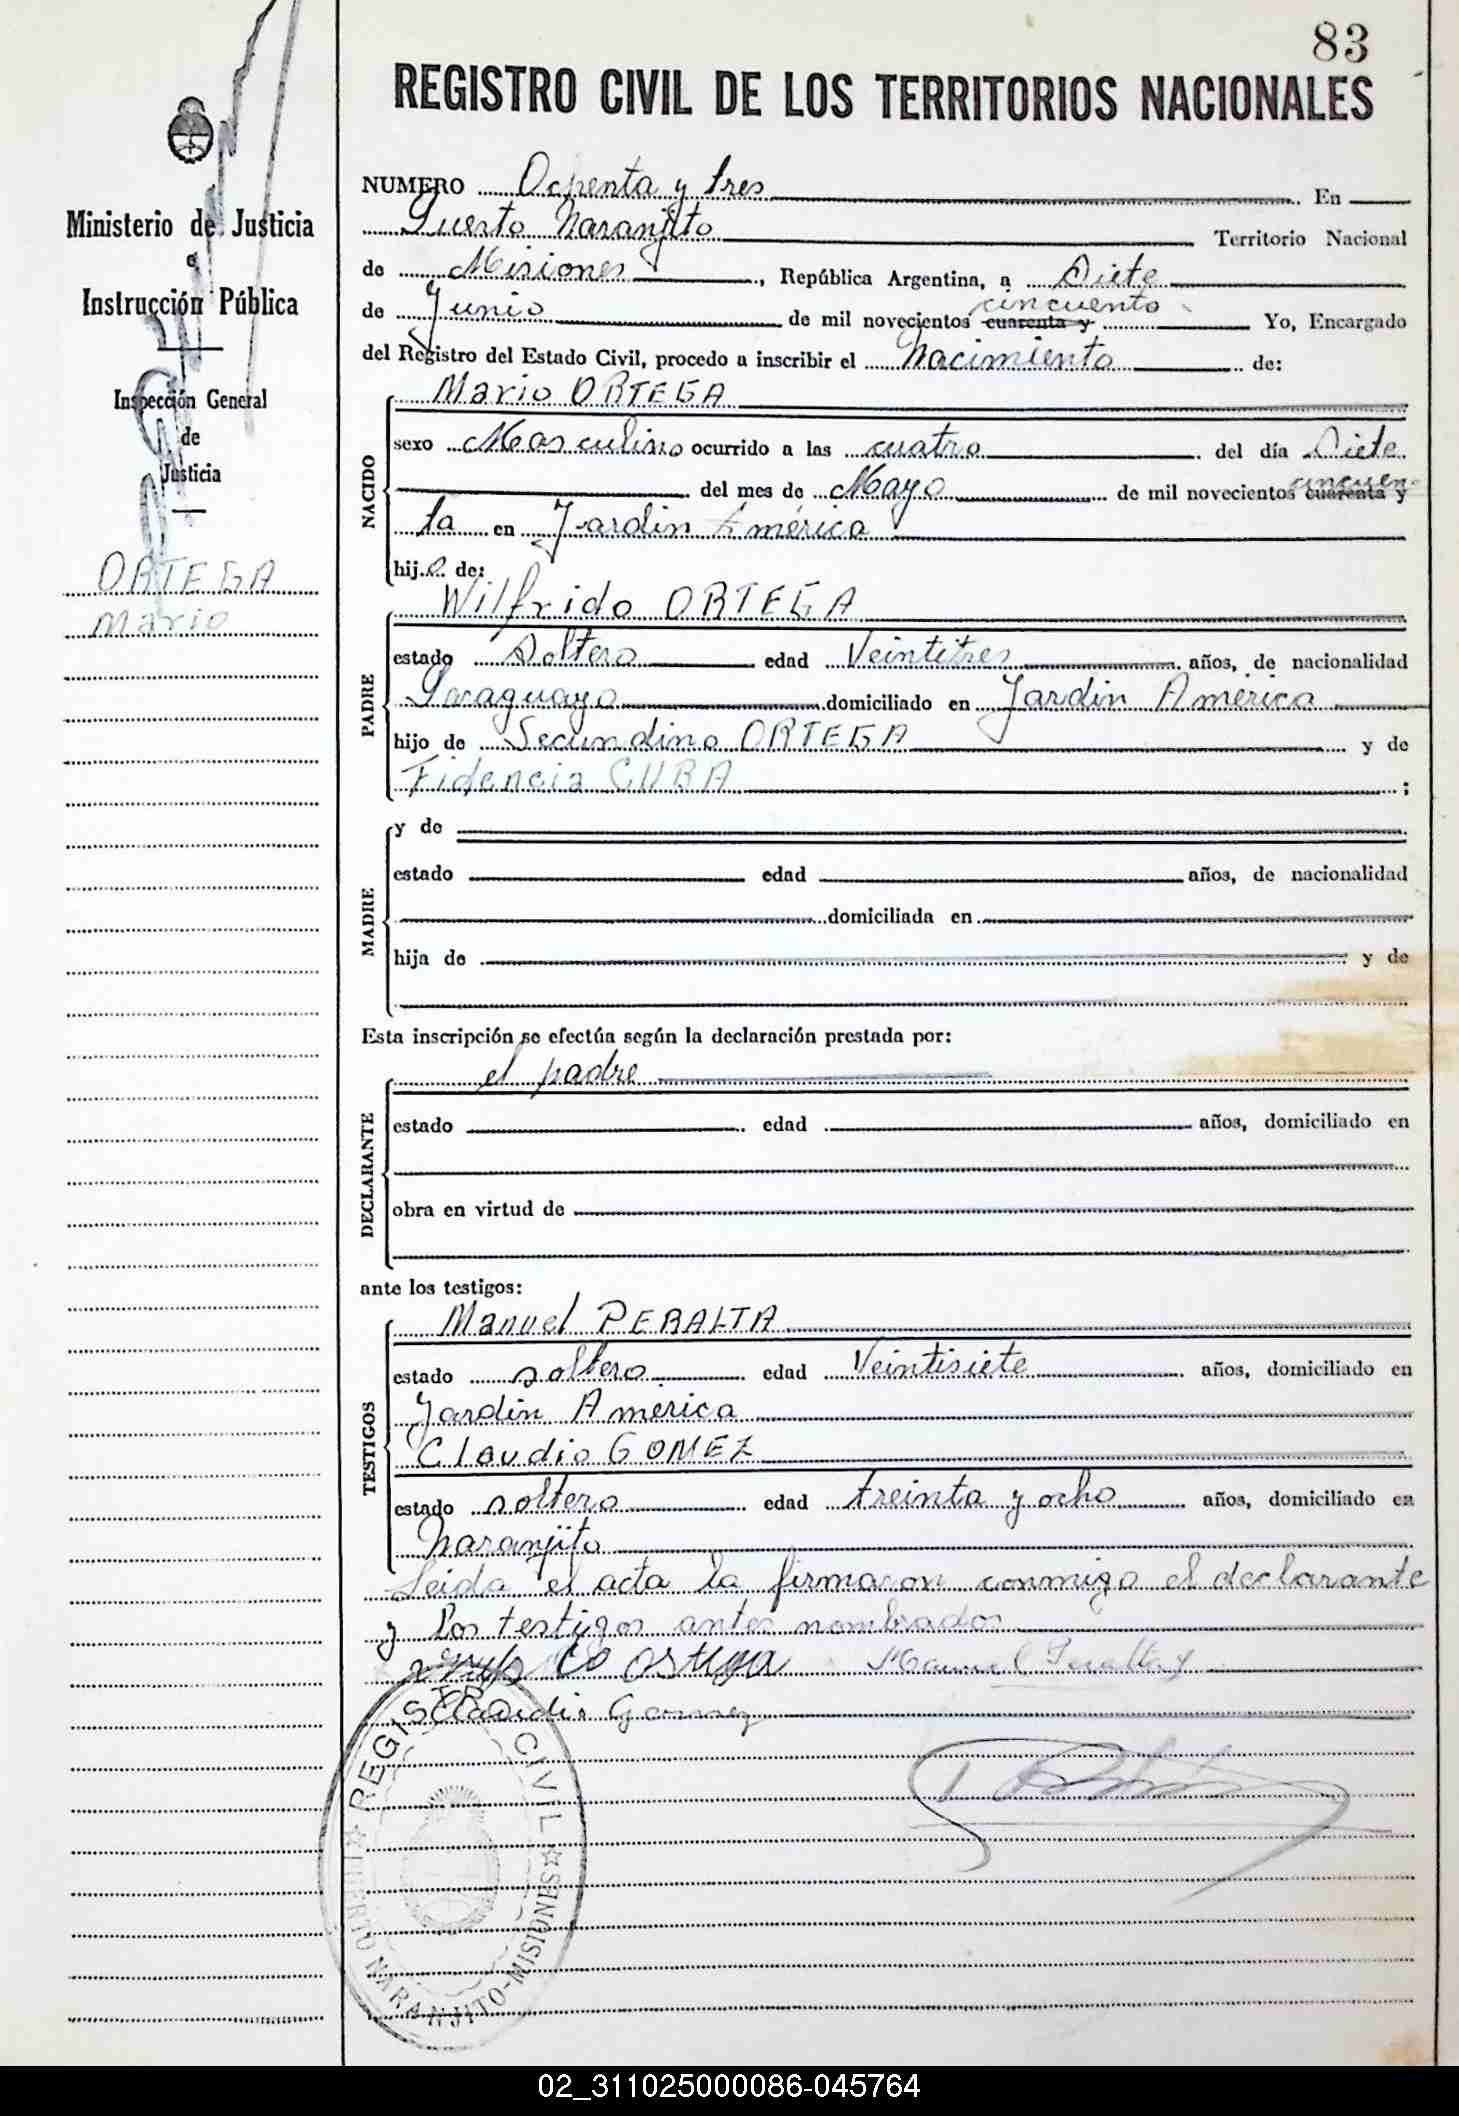 83
REGISTRO CIVIL DE LOS TERRITORIOS NACIONALES
Ministerio de Justicia
e
Instrucción Pública
Inspección General
de
Justicia
ORTEGA
Mario
NUMERO Ochenta y tres En
Puerto Naranjito Territorio Nacional
de Misiones, República Argentina, a Siete
de Junio de mil novecientos cuarenta y cincuenta Yo, Encargado
del Registro del Estado Civil, procedo a inscribir el Nacimiento de:
NACIDO
Mario ORTEGA
sexo Masculino ocurrido a las cuatro del día Siete
del mes de Mayo de mil novecientos cuarenta y cincuen-
ta en Jardin América
hijo de:
PADRE
Wilfrido ORTEGA
estado Soltero edad Veintitres años, de nacionalidad
Paraguayo domiciliado en Jardin América
hijo de Secundino ORTEGA y de
Fidencia CUBA ;
MADRE
y de
estado edad años, de nacionalidad
domiciliada en
hija de y de
Esta inscripción se efectúa según la declaración prestada por:
DECLARANTE
el padre
estado edad años, domiciliado en
obra en virtud de
ante los testigos:
TESTIGOS
Manuel PERALTA
estado soltero edad Veintisiete años, domiciliado en
Jardin América
Claudio GOMEZ
estado soltero edad treinta y ocho años, domiciliado en
Naranjito
Leida el acta la firmaron conmigo el declarante
y los testigos antes nombrados
Manuel Peralta
Claudio Gomez
REGISTRO CIVIL
PUERTO NARANJITO-MISIONES
02_311025000086-045764